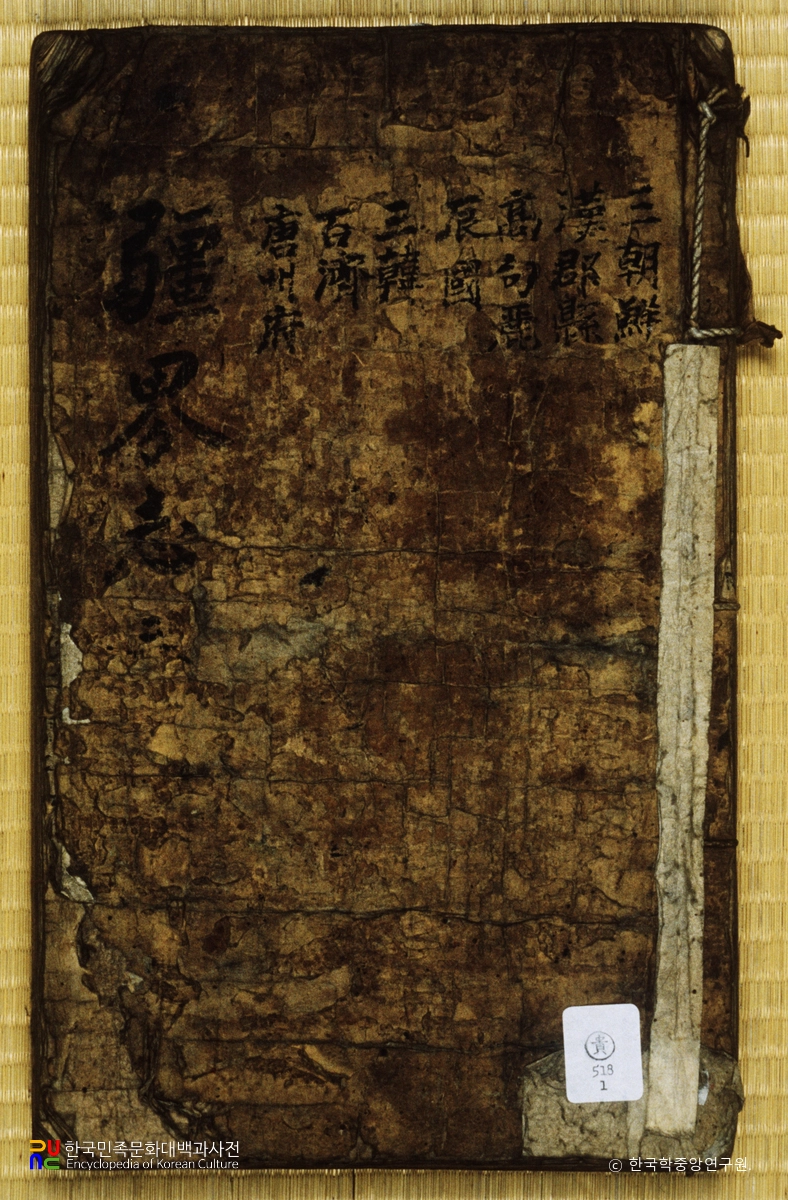 三朝鮮
漢郡縣
高句麗
辰國
三韓
百濟
唐州府
疆界志
貴
518
1
한국민족문화대백과사전
Encyclopedia of Korean Culture
© 한국학중앙연구원